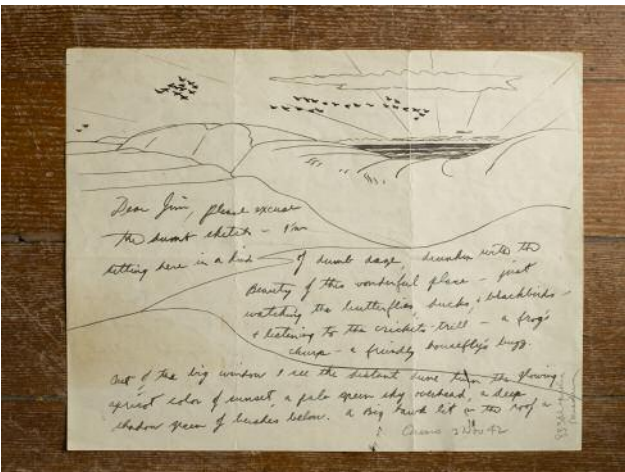 Dear Jim, please excuse
the dumb sketch – I'm
sitting here in a kind
of dumb daze, drunken with the
Beauty of this wonderful place – just
watching the butterflies, ducks, & blackbirds –
& listening to the crickets trill – a frog's
chirp – a friendly housefly's buzz.
Out of the big window I see the distant dune turn the glowing
apricot color of sunset, a pale green sky overhead, a deep
shadow green of bushes below. a Big hawk lit on the roof a
2 Nov 42